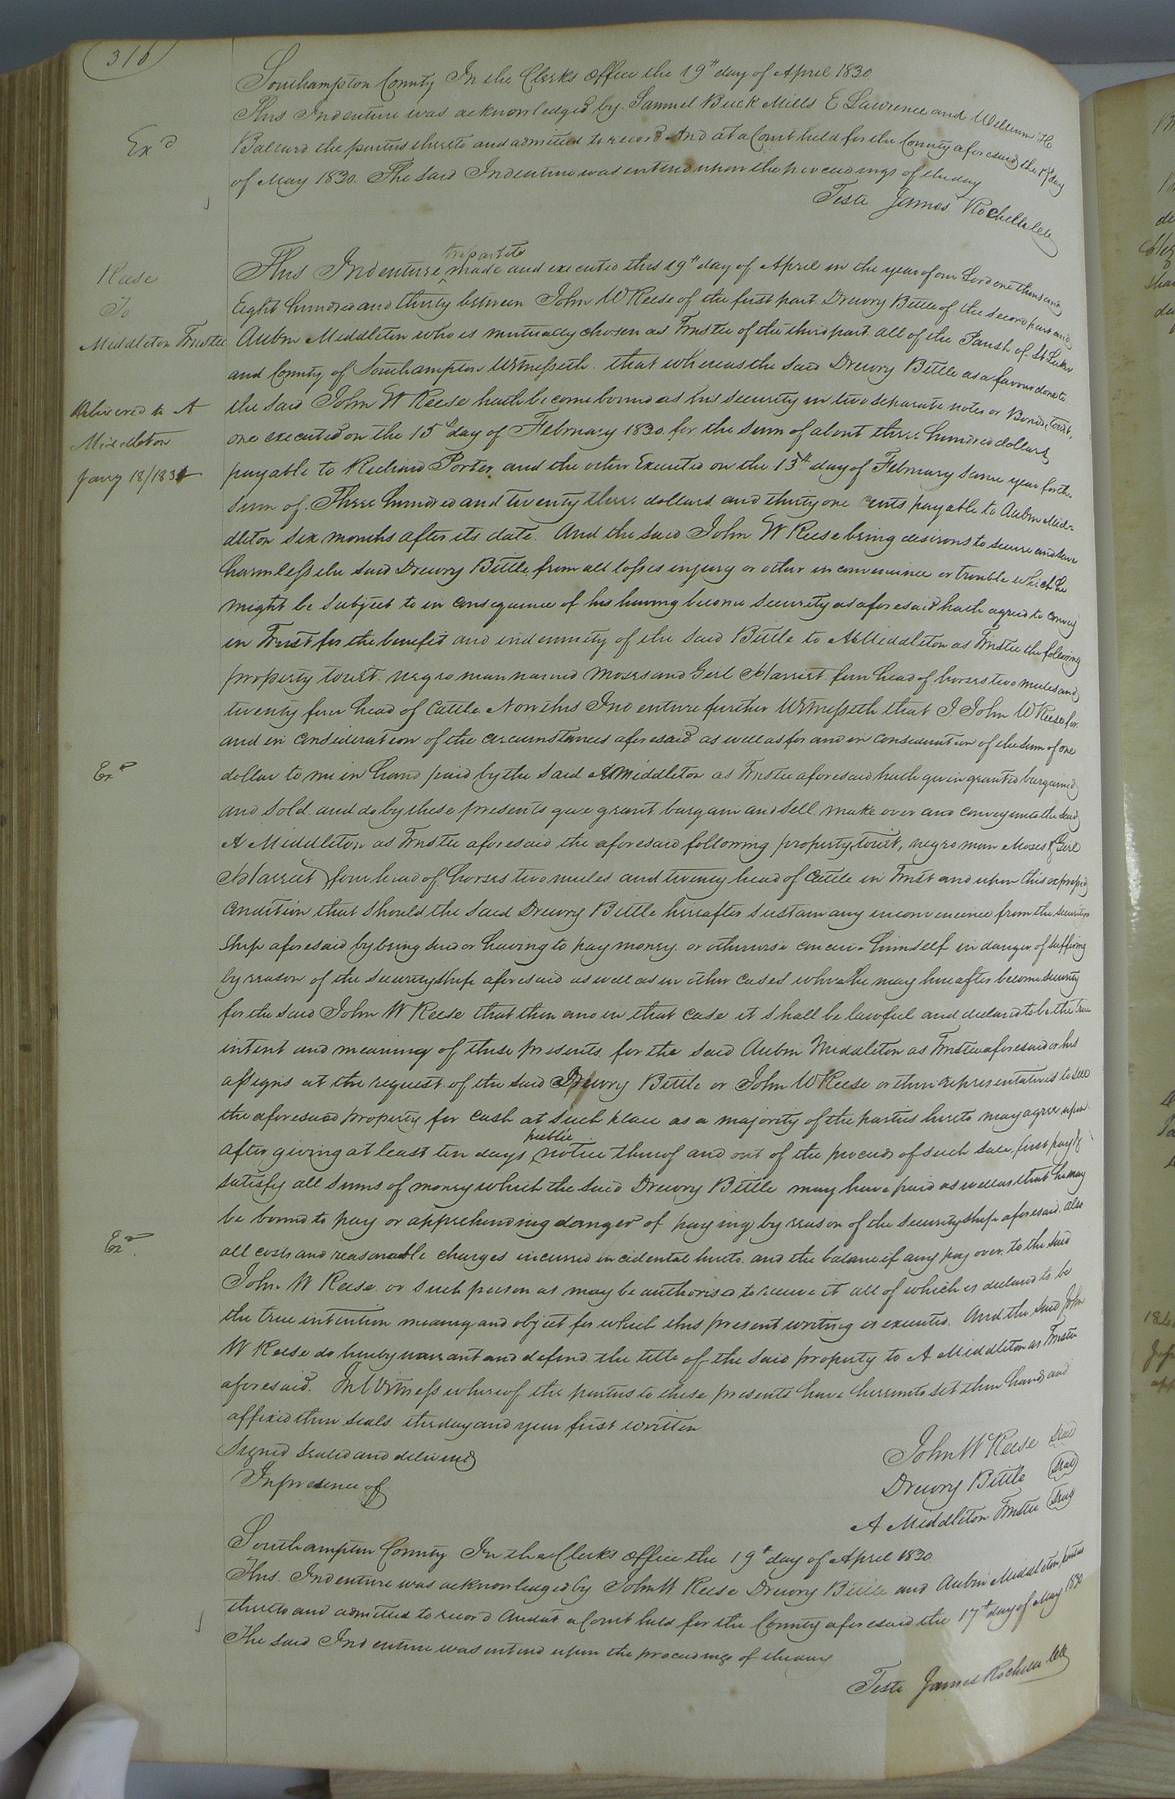 316
Southampton County In the Clerks Office the 19th day of April 1830
This Indenture was acknowledged by Samuel Buck Mills E Lawrence and William H
Exd
Balluard the parties thereto and admitted to record And at a Court held for the County aforesaid the 17th day
of May 1830. The said Indenture was entered upon the proceedings of the day
Teste James Rochelle Clk
Reese
To
Middleton Trustee
This Indenture tripartite made and executed this 19th day of April in the year of our Lord one thousand
Eight hundred and thirty between John W Reese of the first part Drewry Bittle of the second part and
Aubin Middleton who is mutually chosen as Trustee of the third part all of the Parish of St Lukes
and County of Southampton Witnesseth that whereas the said Drewry Bittle as a favour done to
Delivered to A
Middleton
Jany 18/1831
the said John W Reese hath become bound as his security in two separate notes or Bonds, towit,
one executed on the 15th day of February 1830 for the sum of about three hundred dollars
payable to Richard Porter and the other Executed on the 13th day of February same year for the
sum of Three hundred and twenty three dollars and thirty one cents payable to Aubin Mid=
dleton six months after its date. And the said John W Reese being desirous to secure and save
harmless the said Drewry Bittle from all losses injury or other inconvenience or trouble which he
might be subject to in consequence of his having become security as aforesaid hath agreed to convey
in Trust for the benefit and indemnity of the said Bittle to A Middleton as Trustee the following
property towit. negro man named Moses and Girl Harriet four head of horses two mules and
twenty four head of Cattle Now this Indenture further Witnesseth that I John W Reese for
and in consideration of the circumstances aforesaid as well as for and in consideration of the sum of one
Exd
dollar to me in hand paid by the said A Middleton as Trustee aforesaid hath given granted bargained
and sold and do by these presents give grant bargain and sell make over and convey unto the said
A Middleton as Trustee aforesaid the aforesaid following property, towit, negro man Moses & Girl
Harriet four head of horses two mules and twenty head of Cattle in Trust and upon this express
Condition that should the said Drewry Bittle hereafter sustain any inconvenience from the security
ship aforesaid by being sued or having to pay money or otherwise conceive himself in danger of suffering
by reason of the securityship aforesaid as well as in other cases where he may hereafter become security
for the said John W Reese that then and in that case it shall be lawful and declared to be the true
intent and meaning of these presents for the said Aubin Middleton as Trustee aforesaid or his
assigns at the request of the said Drewry Bittle or John W Reese or their representatives to sell
the aforesaid property for cash at such place as a majority of the parties hereto may agree upon
after giving at least ten days public notice thereof and out of the proceeds of such sale, first pay &
satisfy all sums of money which the said Drewry Bittle may have paid as well as that he may
Exd
be bound to pay or apprehending danger of paying by reason of the securityship aforesaid. also
all costs and reasonable charges incurred incidental hereto and the balance if any pay over to the said
John W Reese or such person as may be authorised to receive it all of which is declared to be
the true intention meaning and object for which this present writing is executed. And the said John
W Reese do hereby warrant and defend the title of the said property to A Middleton as Trustee
aforesaid. In Witness whereof the parties to these presents have hereunto set their hands and
affixed their seals the day and year first written
Signed sealed and delivered
In presence of
John W Reese Seal
Drewry Bittle Seal
A Middleton Trustee Seal
Southampton County In the Clerks Office the 19th day of April 1830
This Indenture was acknowledged by John W Reese Drewry Bittle and Aubin Middleton parties
thereto and admitted to record And at a Court held for the County aforesaid the 17th day of May 1830
The said Indenture was entered upon the proceedings of the day
Teste James Rochelle Clk